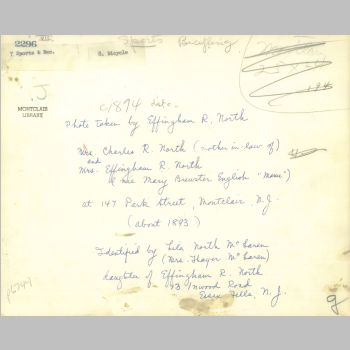 2296
Sports Bicycling
T Sports & Rec.
G. Bicycle
J
MONTCLAIR
LIBRARY
c/1894 date.
Photo taken by Effingham R. North
Mrs. Charles R. North (mother-in-law of)
and
Mrs. Effingham R. North
(née Mary Brewster English "Mamie")
at 147 Park Street, Montclair, N.J.
(about 1893)
Identified by Lila North McLaren
(Mrs. Thayer McLaren)
daughter of Effingham R. North
43 Inwood Road
Essex Fells, N.J.
g